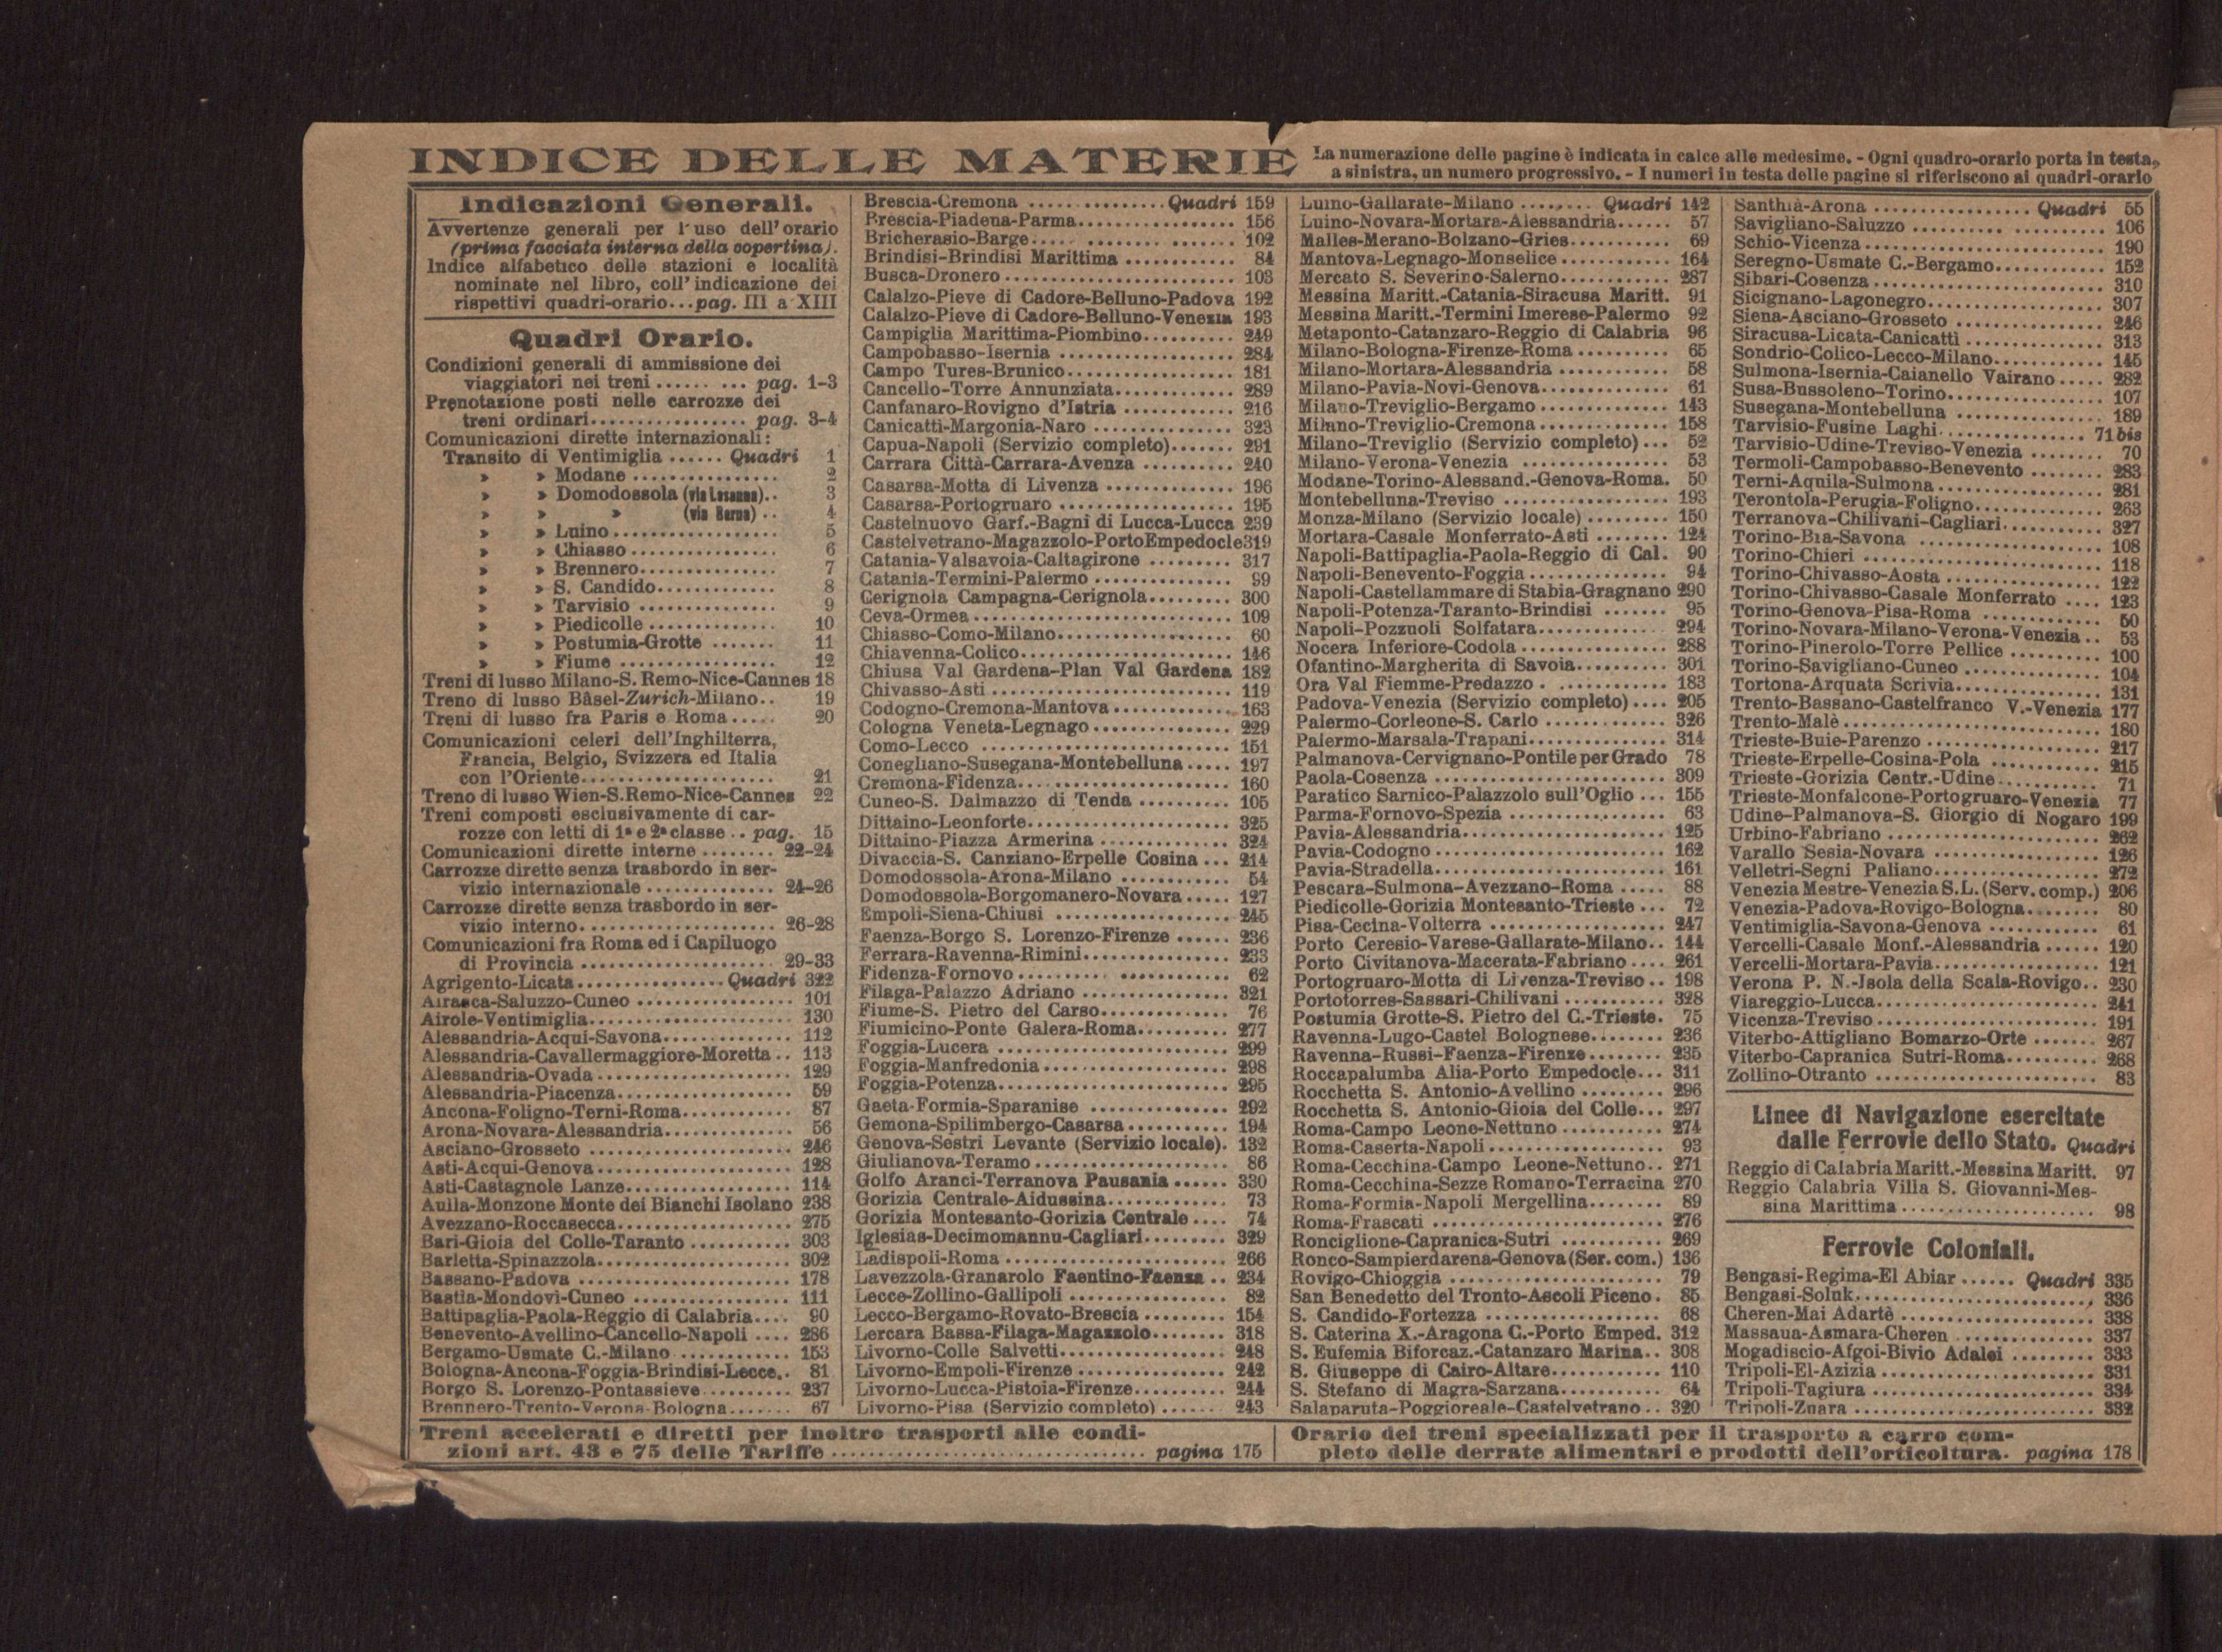 INDICE DELLE MATERIE
La numerazione delle pagine è indicata in calce alle medesime. - Ogni quadro-orario porta in testa,
a sinistra, un numero progressivo. - I numeri in testa delle pagine si riferiscono ai quadri-orario
Indicazioni Generali.
Avvertenze generali per l'uso dell'orario
(prima facciata interna della copertina).
Indice alfabetico delle stazioni e località
nominate nel libro, coll'indicazione dei
rispettivi quadri-orario...pag. III a XIII
Quadri Orario.
Condizioni generali di ammissione dei
viaggiatori nei treni ...... ... pag. 1-3
Prenotazione posti nelle carrozze dei
treni ordinari................ pag. 3-4
Comunicazioni dirette internazionali:
Transito di Ventimiglia ...... Quadri 1
» » Modane ................ 2
» » Domodossola (via Losanna).. 3
» » » (via Berna) .. 4
» » Luino ................. 5
» » Chiasso ................ 6
» » Brennero............... 7
» » S. Candido............. 8
» » Tarvisio ............... 9
» » Piedicolle .............. 10
» » Postumia-Grotte ....... 11
» » Fiume ................. 12
Treni di lusso Milano-S. Remo-Nice-Cannes 18
Treno di lusso Bâsel-Zurich-Milano.. 19
Treni di lusso fra Paris e Roma ..... 20
Comunicazioni celeri dell'Inghilterra,
Francia, Belgio, Svizzera ed Italia
con l'Oriente..................... 21
Treno di lusso Wien-S.Remo-Nice-Cannes 22
Treni composti esclusivamente di car-
rozze con letti di 1ª e 2ª classe .. pag. 15
Comunicazioni dirette interne ........ 22-24
Carrozze dirette senza trasbordo in ser-
vizio internazionale .............. 24-26
Carrozze dirette senza trasbordo in ser-
vizio interno..................... 26-28
Comunicazioni fra Roma ed i Capiluogo
di Provincia ..................... 29-33
Agrigento-Licata................Quadri 322
Airasca-Saluzzo-Cuneo ................. 101
Airole-Ventimiglia...................... 130
Alessandria-Acqui-Savona.............. 112
Alessandria-Cavallermaggiore-Moretta .. 113
Alessandria-Ovada ..................... 129
Alessandria-Piacenza................... 59
Ancona-Foligno-Terni-Roma............ 87
Arona-Novara-Alessandria.............. 56
Asciano-Grosseto ...................... 246
Asti-Acqui-Genova..................... 128
Asti-Castagnole Lanze.................. 114
Aulla-Monzone Monte dei Bianchi Isolano 238
Avezzano-Roccasecca................... 275
Bari-Gioia del Colle-Taranto ........... 303
Barletta-Spinazzola..................... 302
Bassano-Padova ....................... 178
Bastia-Mondovì-Cuneo ................. 111
Battipaglia-Paola-Reggio di Calabria.... 90
Benevento-Avellino-Cancello-Napoli .... 286
Bergamo-Usmate C.-Milano ............ 153
Bologna-Ancona-Foggia-Brindisi-Lecce.. 81
Borgo S. Lorenzo-Pontassieve .......... 237
Brennero-Trento-Verona-Bologna....... 67
Brescia-Cremona ............... Quadri 159
Brescia-Piadena-Parma................. 156
Bricherasio-Barge..... ........ ....... 102
Brindisi-Brindisi Marittima ............ 84
Busca-Dronero ......................... 103
Calalzo-Pieve di Cadore-Belluno-Padova 192
Calalzo-Pieve di Cadore-Belluno-Venezia 193
Campiglia Marittima-Piombino.......... 249
Campobasso-Isernia ................... 284
Campo Tures-Brunico.................. 181
Cancello-Torre Annunziata............. 289
Canfanaro-Rovigno d'Istria ............ 216
Canicattì-Margonia-Naro ............... 323
Capua-Napoli (Servizio completo)....... 291
Carrara Città-Carrara-Avenza .......... 240
Casarsa-Motta di Livenza .............. 196
Casarsa-Portogruaro ................... 195
Castelnuovo Garf.-Bagni di Lucca-Lucca 239
Castelvetrano-Magazzolo-PortoEmpedocle319
Catania-Valsavoia-Caltagirone ......... 317
Catania-Termini-Palermo ............... 99
Cerignola Campagna-Cerignola......... 300
Ceva-Ormea ........................... 109
Chiasso-Como-Milano................... 60
Chiavenna-Colico....................... 146
Chiusa Val Gardena-Plan Val Gardena 182
Chivasso-Asti .......................... 119
Codogno-Cremona-Mantova............. 163
Cologna Veneta-Legnago............... 229
Como-Lecco ........................... 151
Conegliano-Susegana-Montebelluna ..... 197
Cremona-Fidenza....................... 160
Cuneo-S. Dalmazzo di Tenda .......... 105
Dittaino-Leonforte...................... 325
Dittaino-Piazza Armerina .............. 324
Divaccia-S. Canziano-Erpelle Cosina ... 214
Domodossola-Arona-Milano ............ 54
Domodossola-Borgomanero-Novara ..... 127
Empoli-Siena-Chiusi ................... 245
Faenza-Borgo S. Lorenzo-Firenze ...... 236
Ferrara-Ravenna-Rimini................ 233
Fidenza-Fornovo .......... ............ 62
Filaga-Palazzo Adriano ................ 321
Fiume-S. Pietro del Carso.............. 76
Fiumicino-Ponte Galera-Roma.......... 277
Foggia-Lucera ......................... 299
Foggia-Manfredonia .................... 298
Foggia-Potenza......................... 295
Gaeta-Formia-Sparanise ............... 292
Gemona-Spilimbergo-Casarsa........... 194
Genova-Sestri Levante (Servizio locale). 132
Giulianova-Teramo ..................... 86
Golfo Aranci-Terranova Pausania ...... 330
Gorizia Centrale-Aidussina............. 73
Gorizia Montesanto-Gorizia Centrale .... 74
Iglesias-Decimomannu-Cagliari......... 329
Ladispoli-Roma ........................ 266
Lavezzola-Granarolo Faentino-Faenza .. 234
Lecce-Zollino-Gallipoli ................. 82
Lecco-Bergamo-Rovato-Brescia ......... 154
Lercara Bassa-Filaga-Magazzolo........ 318
Livorno-Colle Salvetti................... 248
Livorno-Empoli-Firenze ................ 242
Livorno-Lucca-Pistoia-Firenze.......... 244
Livorno-Pisa (Servizio completo) ....... 243
Luino-Gallarate-Milano ........ Quadri 142
Luino-Novara-Mortara-Alessandria...... 57
Malles-Merano-Bolzano-Gries........... 69
Mantova-Legnago-Monselice ............ 164
Mercato S. Severino-Salerno............ 287
Messina Maritt.-Catania-Siracusa Maritt. 91
Messina Maritt.-Termini Imerese-Palermo 92
Metaponto-Catanzaro-Reggio di Calabria 96
Milano-Bologna-Firenze-Roma .......... 65
Milano-Mortara-Alessandria ............ 58
Milano-Pavia-Novi-Genova.............. 61
Milano-Treviglio-Bergamo .............. 143
Milano-Treviglio-Cremona.............. 158
Milano-Treviglio (Servizio completo) ... 52
Milano-Verona-Venezia ................ 53
Modane-Torino-Alessand.-Genova-Roma. 50
Montebelluna-Treviso .................. 193
Monza-Milano (Servizio locale) ......... 150
Mortara-Casale Monferrato-Asti ........ 124
Napoli-Battipaglia-Paola-Reggio di Cal. 90
Napoli-Benevento-Foggia ............... 94
Napoli-Castellammare di Stabia-Gragnano 290
Napoli-Potenza-Taranto-Brindisi ....... 95
Napoli-Pozzuoli Solfatara.............. 294
Nocera Inferiore-Codola ................ 288
Ofantino-Margherita di Savoia.......... 301
Ora Val Fiemme-Predazzo . ............ 183
Padova-Venezia (Servizio completo) .... 205
Palermo-Corleone-S. Carlo ............. 326
Palermo-Marsala-Trapani............... 314
Palmanova-Cervignano-Pontile per Grado 78
Paola-Cosenza ......................... 309
Paratico Sarnico-Palazzolo sull'Oglio ... 155
Parma-Fornovo-Spezia ................. 63
Pavia-Alessandria...................... 125
Pavia-Codogno ......................... 162
Pavia-Stradella......................... 161
Pescara-Sulmona-Avezzano-Roma ..... 88
Piedicolle-Gorizia Montesanto-Trieste ... 72
Pisa-Cecina-Volterra ................... 247
Porto Ceresio-Varese-Gallarate-Milano.. 144
Porto Civitanova-Macerata-Fabriano .... 261
Portogruaro-Motta di Livenza-Treviso .. 198
Portotorres-Sassari-Chilivani ........... 328
Postumia Grotte-S. Pietro del C.-Trieste. 75
Ravenna-Lugo-Castel Bolognese........ 236
Ravenna-Russi-Faenza-Firenze ........ 235
Roccapalumba Alia-Porto Empedocle... 311
Rocchetta S. Antonio-Avellino ......... 296
Rocchetta S. Antonio-Gioia del Colle... 297
Roma-Campo Leone-Nettuno ........... 274
Roma-Caserta-Napoli ................... 93
Roma-Cecchina-Campo Leone-Nettuno.. 271
Roma-Cecchina-Sezze Romano-Terracina 270
Roma-Formia-Napoli Mergellina........ 89
Roma-Frascati ......................... 276
Ronciglione-Capranica-Sutri ........... 269
Ronco-Sampierdarena-Genova (Ser. com.) 136
Rovigo-Chioggia ....................... 79
San Benedetto del Tronto-Ascoli Piceno . 85
S. Candido-Fortezza ................... 68
S. Caterina X.-Aragona C.-Porto Emped. 312
S. Eufemia Biforcaz.-Catanzaro Marina.. 308
S. Giuseppe di Cairo-Altare............ 110
S. Stefano di Magra-Sarzana........... 64
Salaparuta-Poggioreale-Castelvetrano .. 320
Santhià-Arona ................. Quadri 55
Savigliano-Saluzzo .......... .......... 106
Schio-Vicenza ......................... 190
Seregno-Usmate C.-Bergamo............ 152
Sibari-Cosenza ........................ 310
Sicignano-Lagonegro................... 307
Siena-Asciano-Grosseto ................ 246
Siracusa-Licata-Canicattì .............. 313
Sondrio-Colico-Lecco-Milano............ 145
Sulmona-Isernia-Caianello Vairano ..... 282
Susa-Bussoleno-Torino................. 107
Susegana-Montebelluna ................ 189
Tarvisio-Fusine Laghi ................ 71 bis
Tarvisio-Udine-Treviso-Venezia ........ 70
Termoli-Campobasso-Benevento ........ 283
Terni-Aquila-Sulmona.................. 281
Terontola-Perugia-Foligno.............. 263
Terranova-Chilivani-Cagliari........... 327
Torino-Bra-Savona .................... 108
Torino-Chieri .......................... 118
Torino-Chivasso-Aosta ................. 122
Torino-Chivasso-Casale Monferrato .... 123
Torino-Genova-Pisa-Roma ............. 50
Torino-Novara-Milano-Verona-Venezia .. 53
Torino-Pinerolo-Torre Pellice .......... 100
Torino-Savigliano-Cuneo ............... 104
Tortona-Arquata Scrivia................ 131
Trento-Bassano-Castelfranco V.-Venezia 177
Trento-Malè ........................... 180
Trieste-Buie-Parenzo .................. 217
Trieste-Erpelle-Cosina-Pola ............ 215
Trieste-Gorizia Centr.-Udine........... 71
Trieste-Monfalcone-Portogruaro-Venezia 77
Udine-Palmanova-S. Giorgio di Nogaro 199
Urbino-Fabriano ....................... 262
Varallo Sesia-Novara .................. 126
Velletri-Segni Paliano.................. 272
Venezia Mestre-Venezia S.L. (Serv. comp.) 206
Venezia-Padova-Rovigo-Bologna........ 80
Ventimiglia-Savona-Genova ............ 61
Vercelli-Casale Monf.-Alessandria ...... 120
Vercelli-Mortara-Pavia.................. 121
Verona P. N.-Isola della Scala-Rovigo.. 230
Viareggio-Lucca........................ 241
Vicenza-Treviso ........................ 191
Viterbo-Attigliano Bomarzo-Orte ....... 267
Viterbo-Capranica Sutri-Roma.......... 268
Zollino-Otranto ........................ 83
Linee di Navigazione esercitate
dalle Ferrovie dello Stato. Quadri
Reggio di Calabria Maritt.-Messina Maritt. 97
Reggio Calabria Villa S. Giovanni-Mes-
sina Marittima ..................... 98
Ferrovie Coloniali.
Bengasi-Regima-El Abiar ...... Quadri 335
Bengasi-Soluk.......................... 336
Cheren-Mai Adartè ..................... 338
Massaua-Asmara-Cheren ............... 337
Mogadiscio-Afgoi-Bivio Adalei ......... 333
Tripoli-El-Azizia ....................... 331
Tripoli-Tagiura ........................ 334
Tripoli-Zuara .......................... 332
Treni accelerati e diretti per inoltro trasporti alle condi-
zioni art. 43 e 75 delle Tariffe .................................. pagina 175
Orario dei treni specializzati per il trasporto a carro com-
pleto delle derrate alimentari e prodotti dell'orticoltura. pagina 178